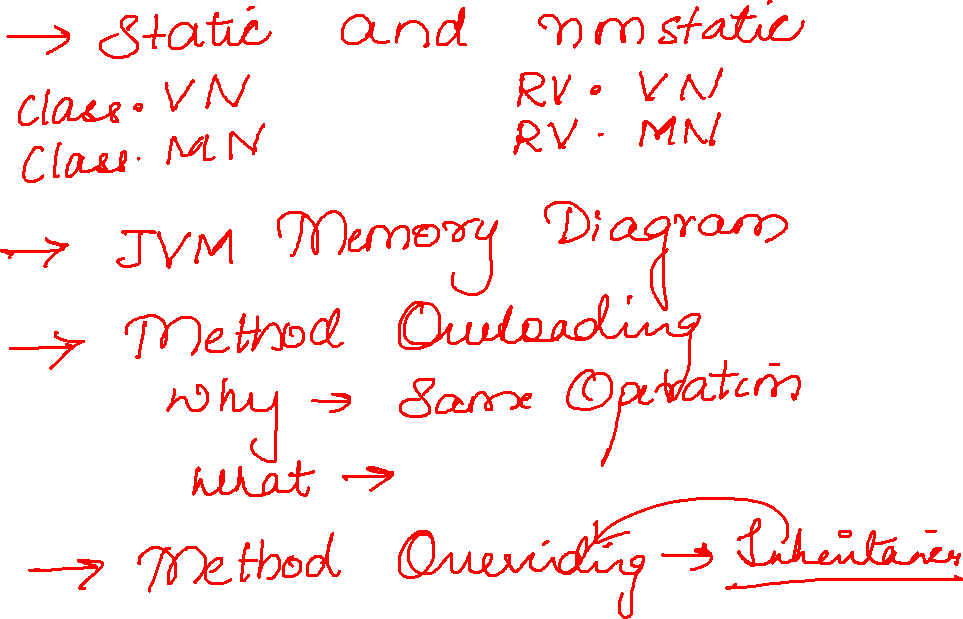 → Static and nonstatic
Class. VN RV. VN
Class. MN RV. MN
→ JVM Memory Diagram
→ Method Overloading
Why → Same Operation
What →
→ Method Overriding → Inheritance